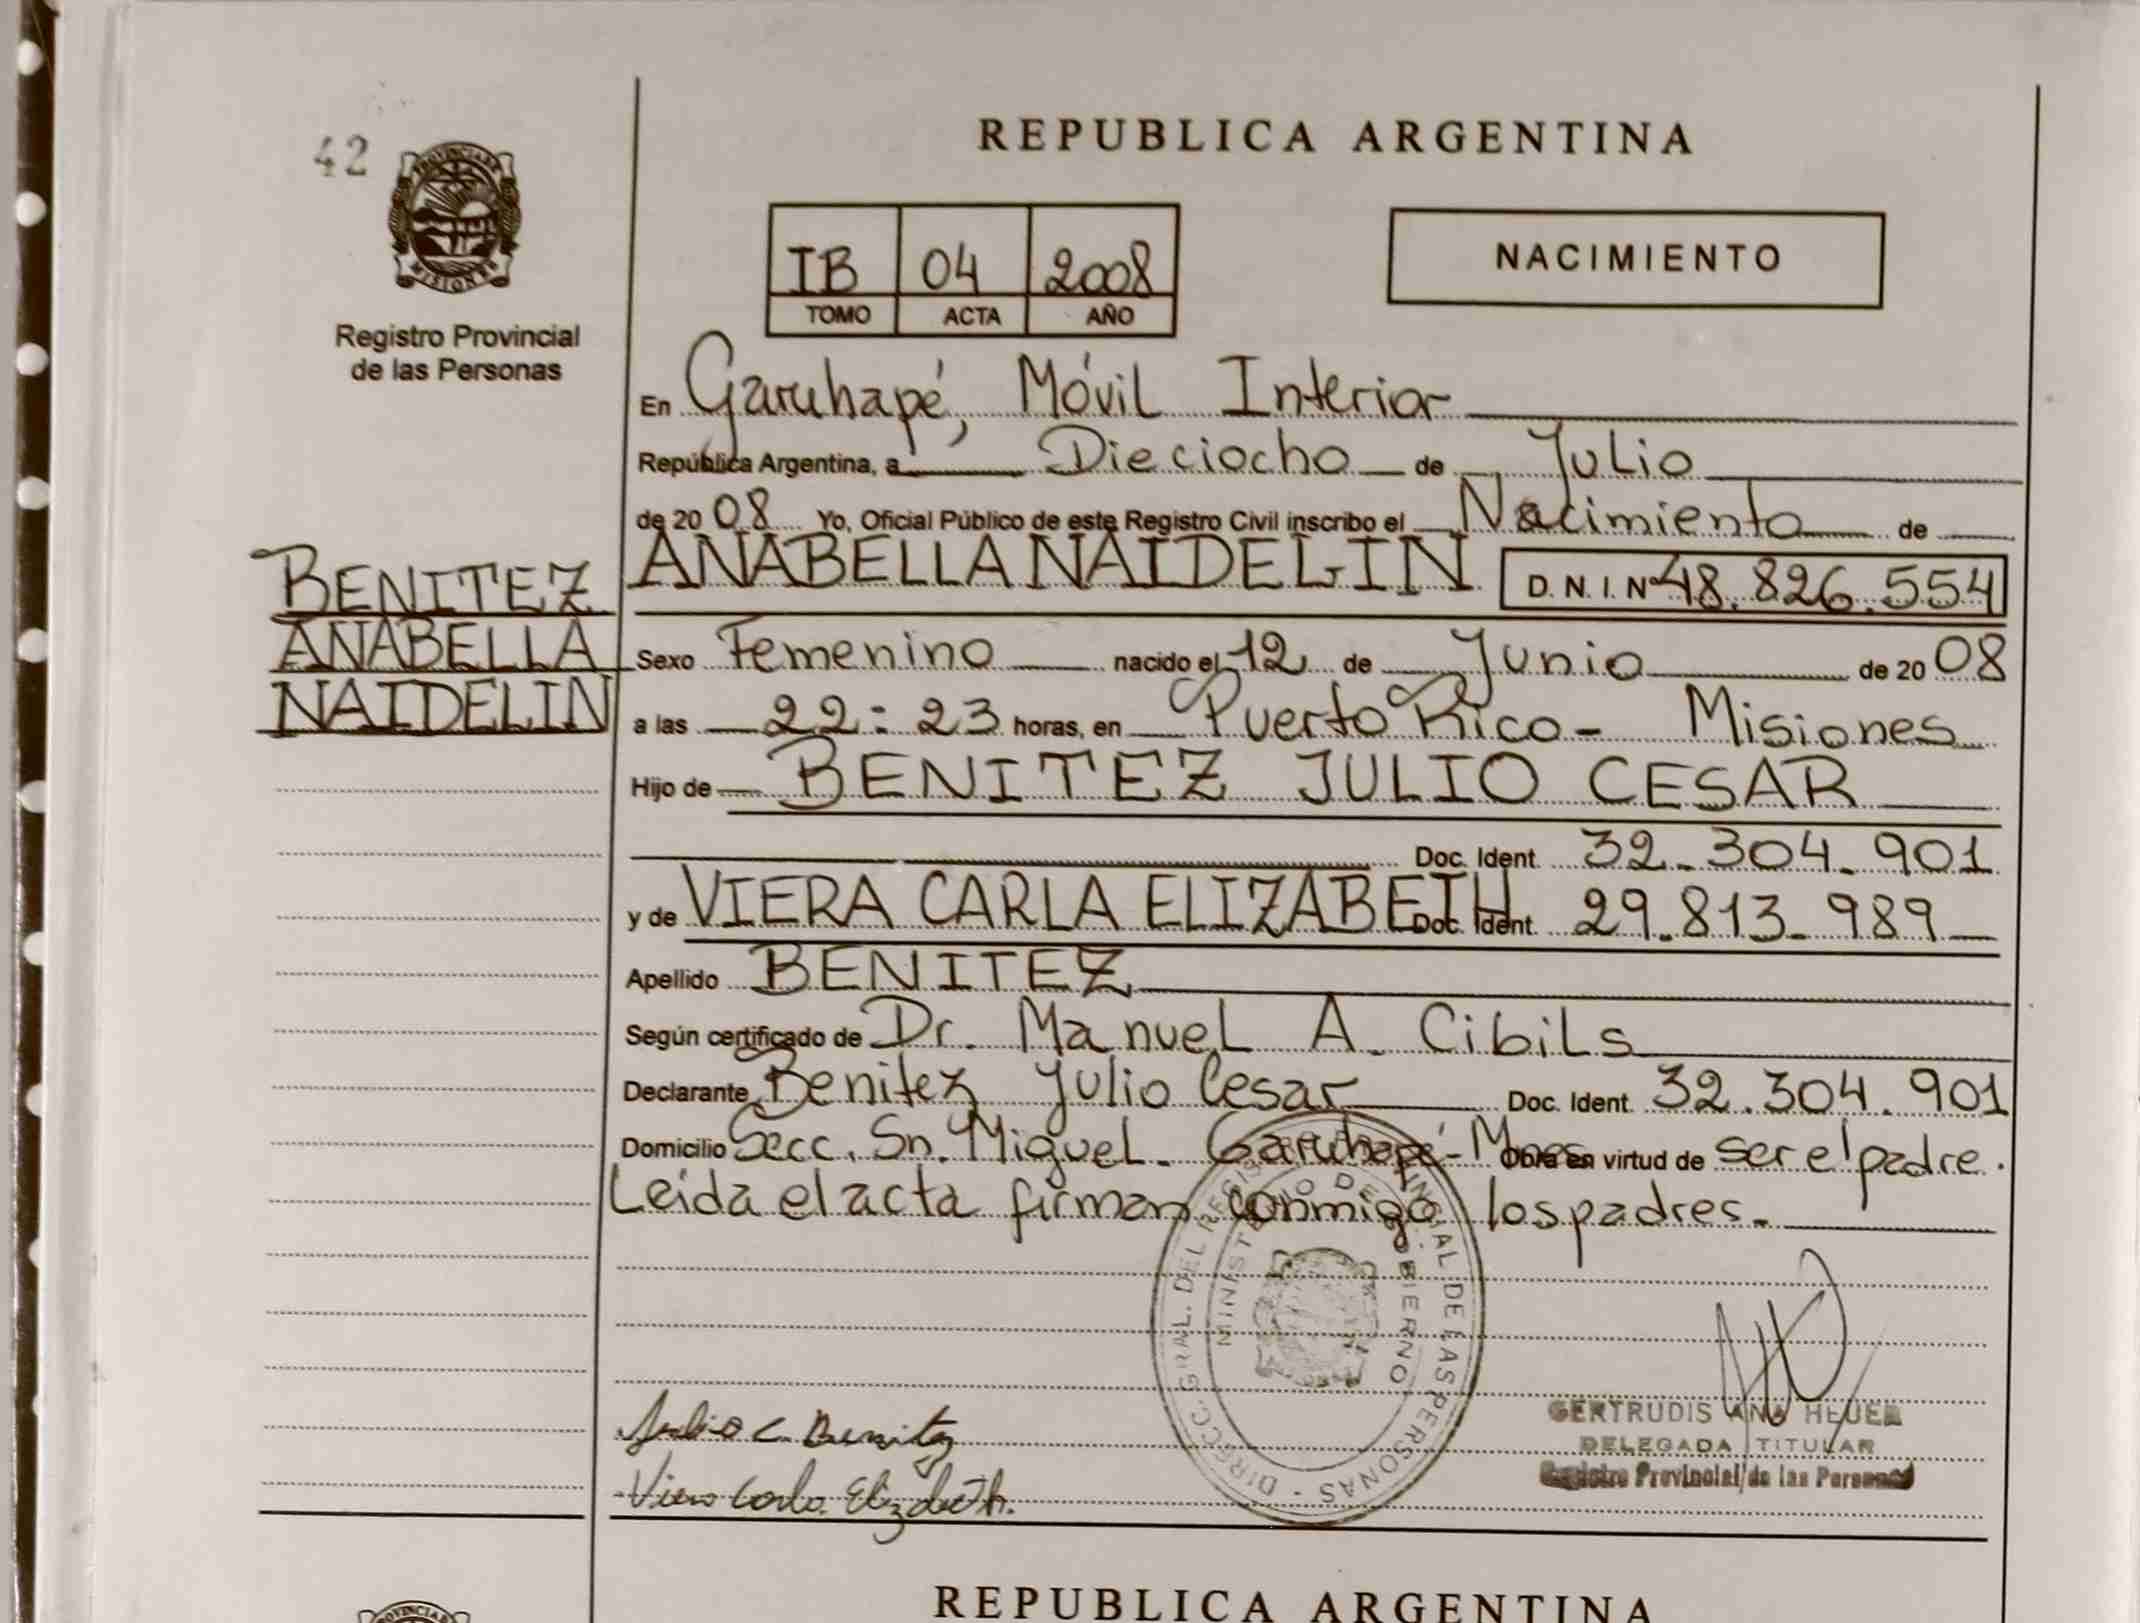 42
PROVINCIA DE
MISIONES
Registro Provincial
de las Personas
REPUBLICA ARGENTINA
IB 04 2008
TOMO ACTA AÑO
NACIMIENTO
En Garuhapé, Móvil Interior
República Argentina, a Dieciocho de Julio
de 2008 Yo, Oficial Público de este Registro Civil inscribo el Nacimiento de
BENITEZ
ANABELLA
NAIDELIN
ANABELLA NAIDELIN D.N.I. Nº 48.826.554
Sexo Femenino nacido el 12 de Junio de 2008
a las 22:23 horas, en Puerto Rico - Misiones
Hijo de BENITEZ JULIO CESAR
Doc. Ident. 32.304.901
y de VIERA CARLA ELIZABETH Doc. Ident. 29.813.989
Apellido BENITEZ
Según certificado de Dr. Manuel A. Cibils
Declarante Benitez Julio Cesar Doc. Ident. 32.304.901
Domicilio Secc. Sn. Miguel. Garuhapé - Mnes Obra en virtud de ser el padre.
Leida el acta firman conmigo los padres.
DIRECC. GRAL. DEL REGIS PROVINCIAL DE LAS PERSONAS
MINISTERIO DE GOBIERNO
Julio C. Benitez
Viera Carla Elizabeth.
GERTRUDIS ANA HEUER
DELEGADA TITULAR
Registro Provincial de las Personas
PROVINCIA
REPUBLICA ARGENTINA